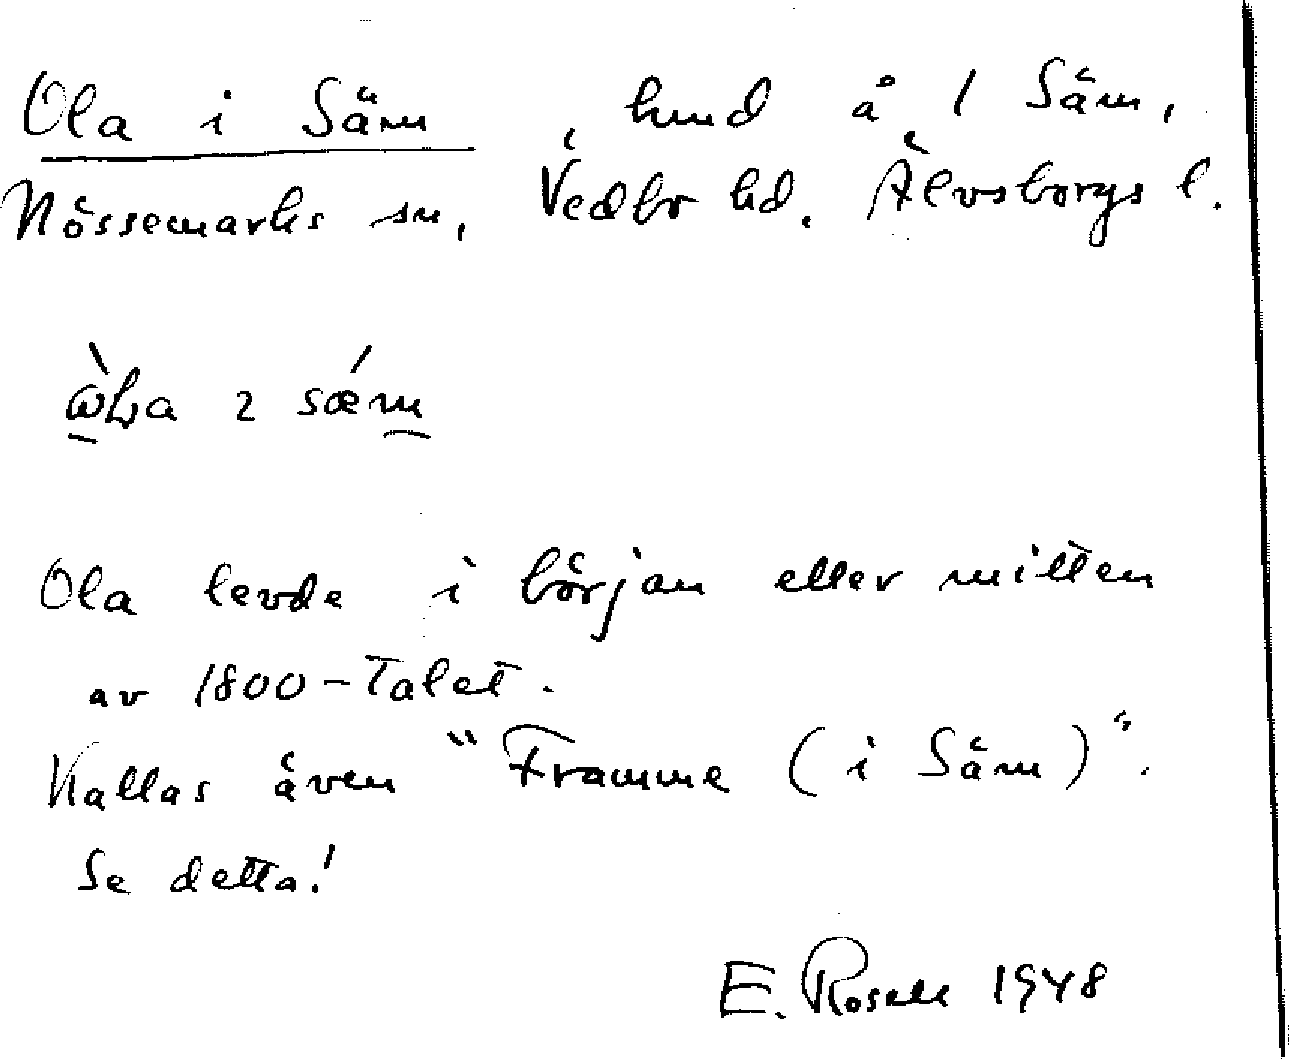 Ola i Säm, hmd å 1 Säm,
Nössemarks sn, Vedbo hd. Älvsborgs l.
Ola levde i början eller mitten
av 1800-talet.
Kallas även "Framme (i Säm)".
Se detta!
E. Rosell 1948